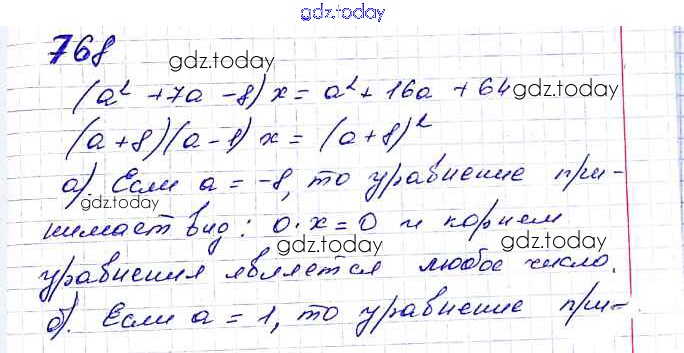 gdz.today
768
gdz.today
(a² + 7a - 8)x = a² + 16a + 64
gdz.today
(a + 8)(a - 1)x = (a + 8)²
а) Если a = -8, то уравнение при-
gdz.today
нимает вид: 0·x = 0 и корнем
gdz.today
gdz.today
уравнения является любое число.
б). Если a = 1, то уравнение при-